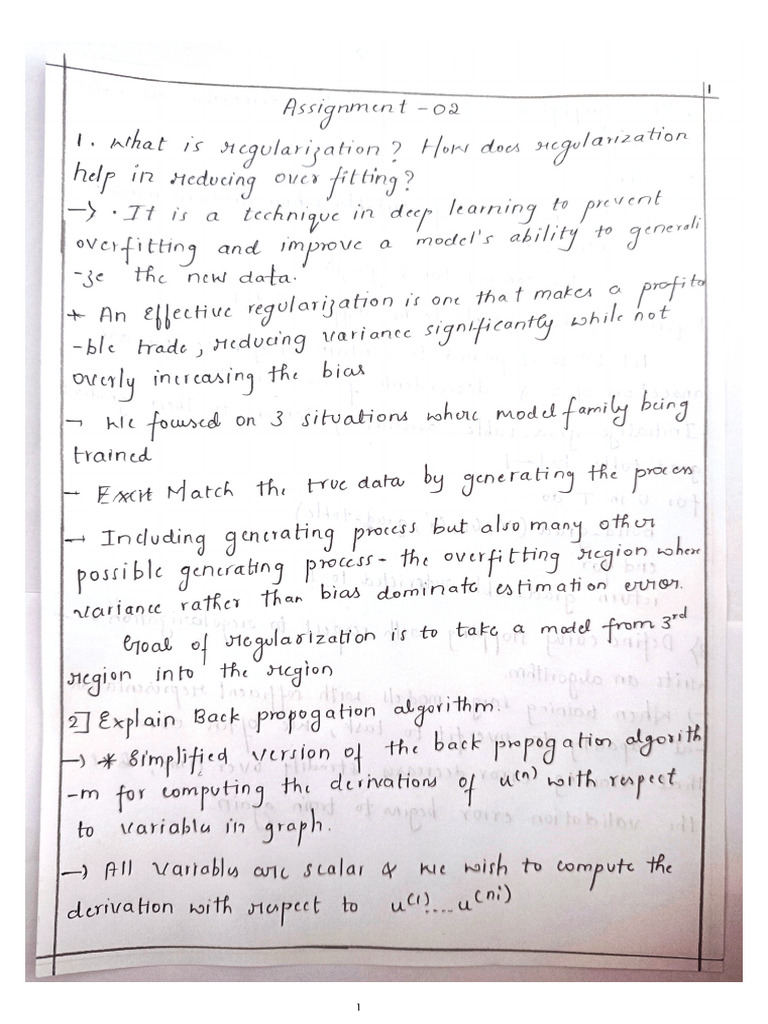 1
Assignment - 02
1. What is regularization? How does regularization
help in reducing over fitting?
→ · It is a technique in deep learning to prevent
overfitting and improve a model's ability to generali
-ze the new data.
* An effective regularization is one that makes a profita
-ble trade, reducing variance significantly while not
overly increasing the bias
→ We focused on 3 situations where model family being
trained
→ Match the true data by generating the process
→ Including generating process but also many other
possible generating process - the overfitting region where
variance rather than bias dominate estimation error.
Goal of regularization is to take a model from 3rd
region into the region
2] Explain Back propogation algorithm.
→ * Simplified version of the back propogation algorith
-m for computing the derivations of u(n) with respect
to variables in graph.
→ All variables are scalar & we wish to compute the
derivation with respect to u(1).....u(ni)
1